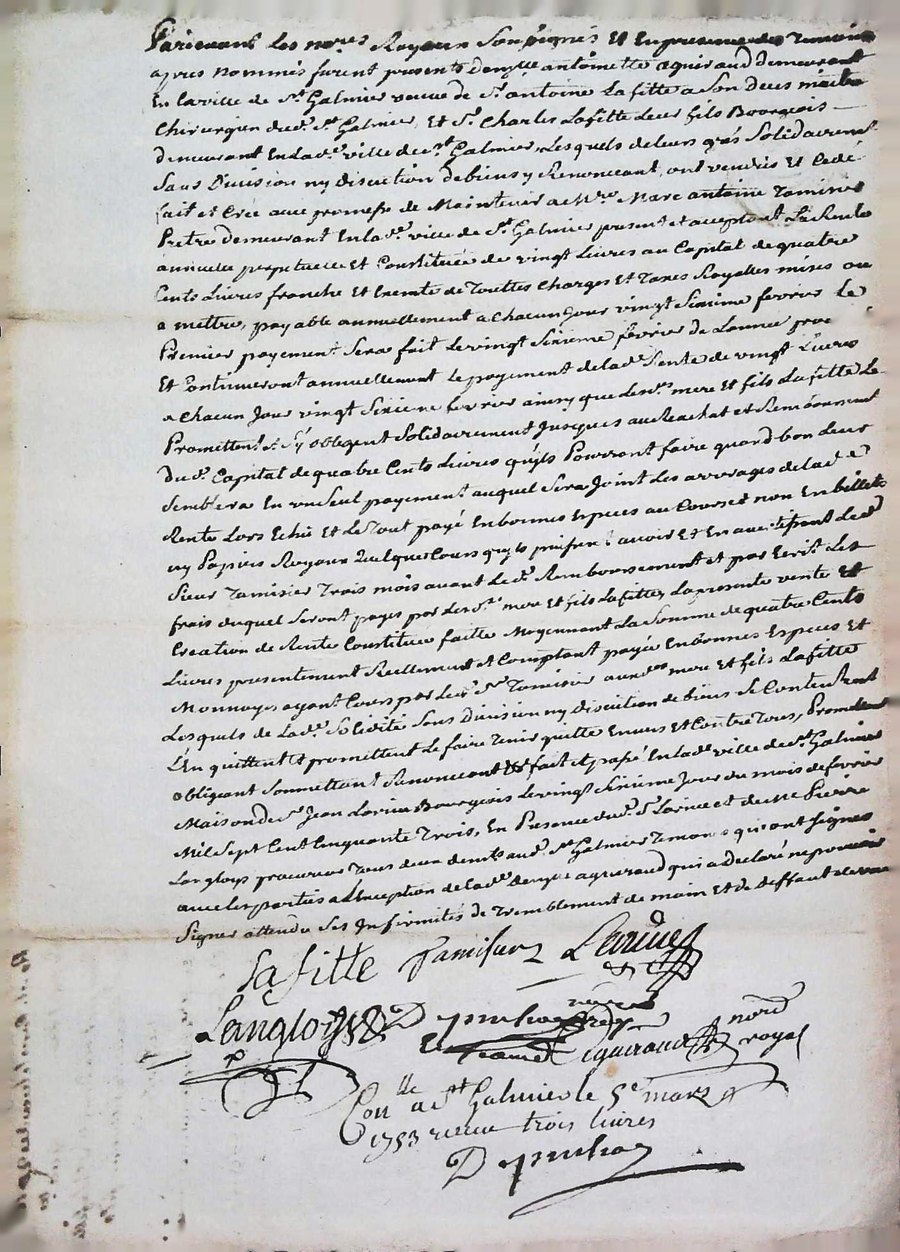 Pardevant les no.res Royaux Soussignés Et En presence des Temoins
apres Nommés furent presents dem.lle antoinette aguiraud demeurant
En la ville de S.t Galmier veuve de S.r antoine Lafitte a Son deces maitre
Chirurgien dud. S.t Galmier, Et S.r Charles Lafitte Leur fils Bourgeois
demeurant En lad.e ville de S.t Galmier, Lesquels de leurs grés Solidairem.t
Sans Division ny discution de biens y Renoncant, ont vendus Et Cedé
fait et Créé avec promesse de Maintenir a M.re Marc antoine Tamisier
Pretre demeurant En lad.e ville de S.t Galmier present et acceptant La Rente
annuelle perpetuelle Et Constituée de vingt Livres au Capital de quatre
Cents Livres franche Et Exemte de Touttes Charges Et Taxes Royalles mises ou
a mettre, payable annuellement a Chacun Jour vingt Sixieme fevrier Le
Premier payement Sera fait Le vingt Sixieme fevrier de Lannee
Et Continueront annuellement Le payement de lad.e Rente de vingt Livres
a Chacun Jour vingt Sixieme fevrier ainsy que lesd. mere Et fils Lafitte Le
Promettent Et S'y obligent Solidairement Jusques au Rachat et Remboursement
dud. Capital de quatre Cents Livres qu'ils Pourront faire quand bon Leur
Semblera En un Seul payement auquel Sera Joint Les arrerages de lad.e
Rente Lors Echû Et Le Tout payé En bonnes Especes au Cours et non En billets
ny Papiers Royaux Quelque Cours qu'ils puissent avoir Et En avertissant Led.
Sieur Tamisier Trois mois avant Led. Remboursement et par Ecrit Les
frais duquel Seront payés par Lesd. mere et fils Lafitte, La presente vente Et
Creation de Rente Constituée faitte Moyennant La Somme de quatre Cents
Livres presentement Reellement et Comptant payée En bonnes Especes Et
Monnoyes ayant Cours par Led. S.r Tamisier auxd. mere Et fils Lafitte
Lesquels de Lad.e Solidité Sans Division ny discution de biens Se Contentent
L'En quittent Et promettent Le faire Tenir quitte Envers et Contre Tous, Promettant
obligeant Soumettant Renonceant fait et passé En lad.e ville de S.t Galmier
Maison de S.r Jean Larive Bourgeois Le vingt Sixieme Jour du mois de fevrier
Mil Sept Cent Cinquante Trois, En Presence dud. S.r Larive et de M.e Pierre
Langloys procureur Tous deux demts aud. S.t Galmier Temoins qui ont Signés
avec les parties a L'Exception de lad.e dem.lle aguiraud qui a declaré ne pouvoir
Signer attendu Ses Infirmités de Tremblement de main Et de deffaut de vue
Lafitte Tamisier Larive
Langloys
aguiraud no.re royal
Con.lle a S.t Galmier le 5.e mars
1753 receu trois livres